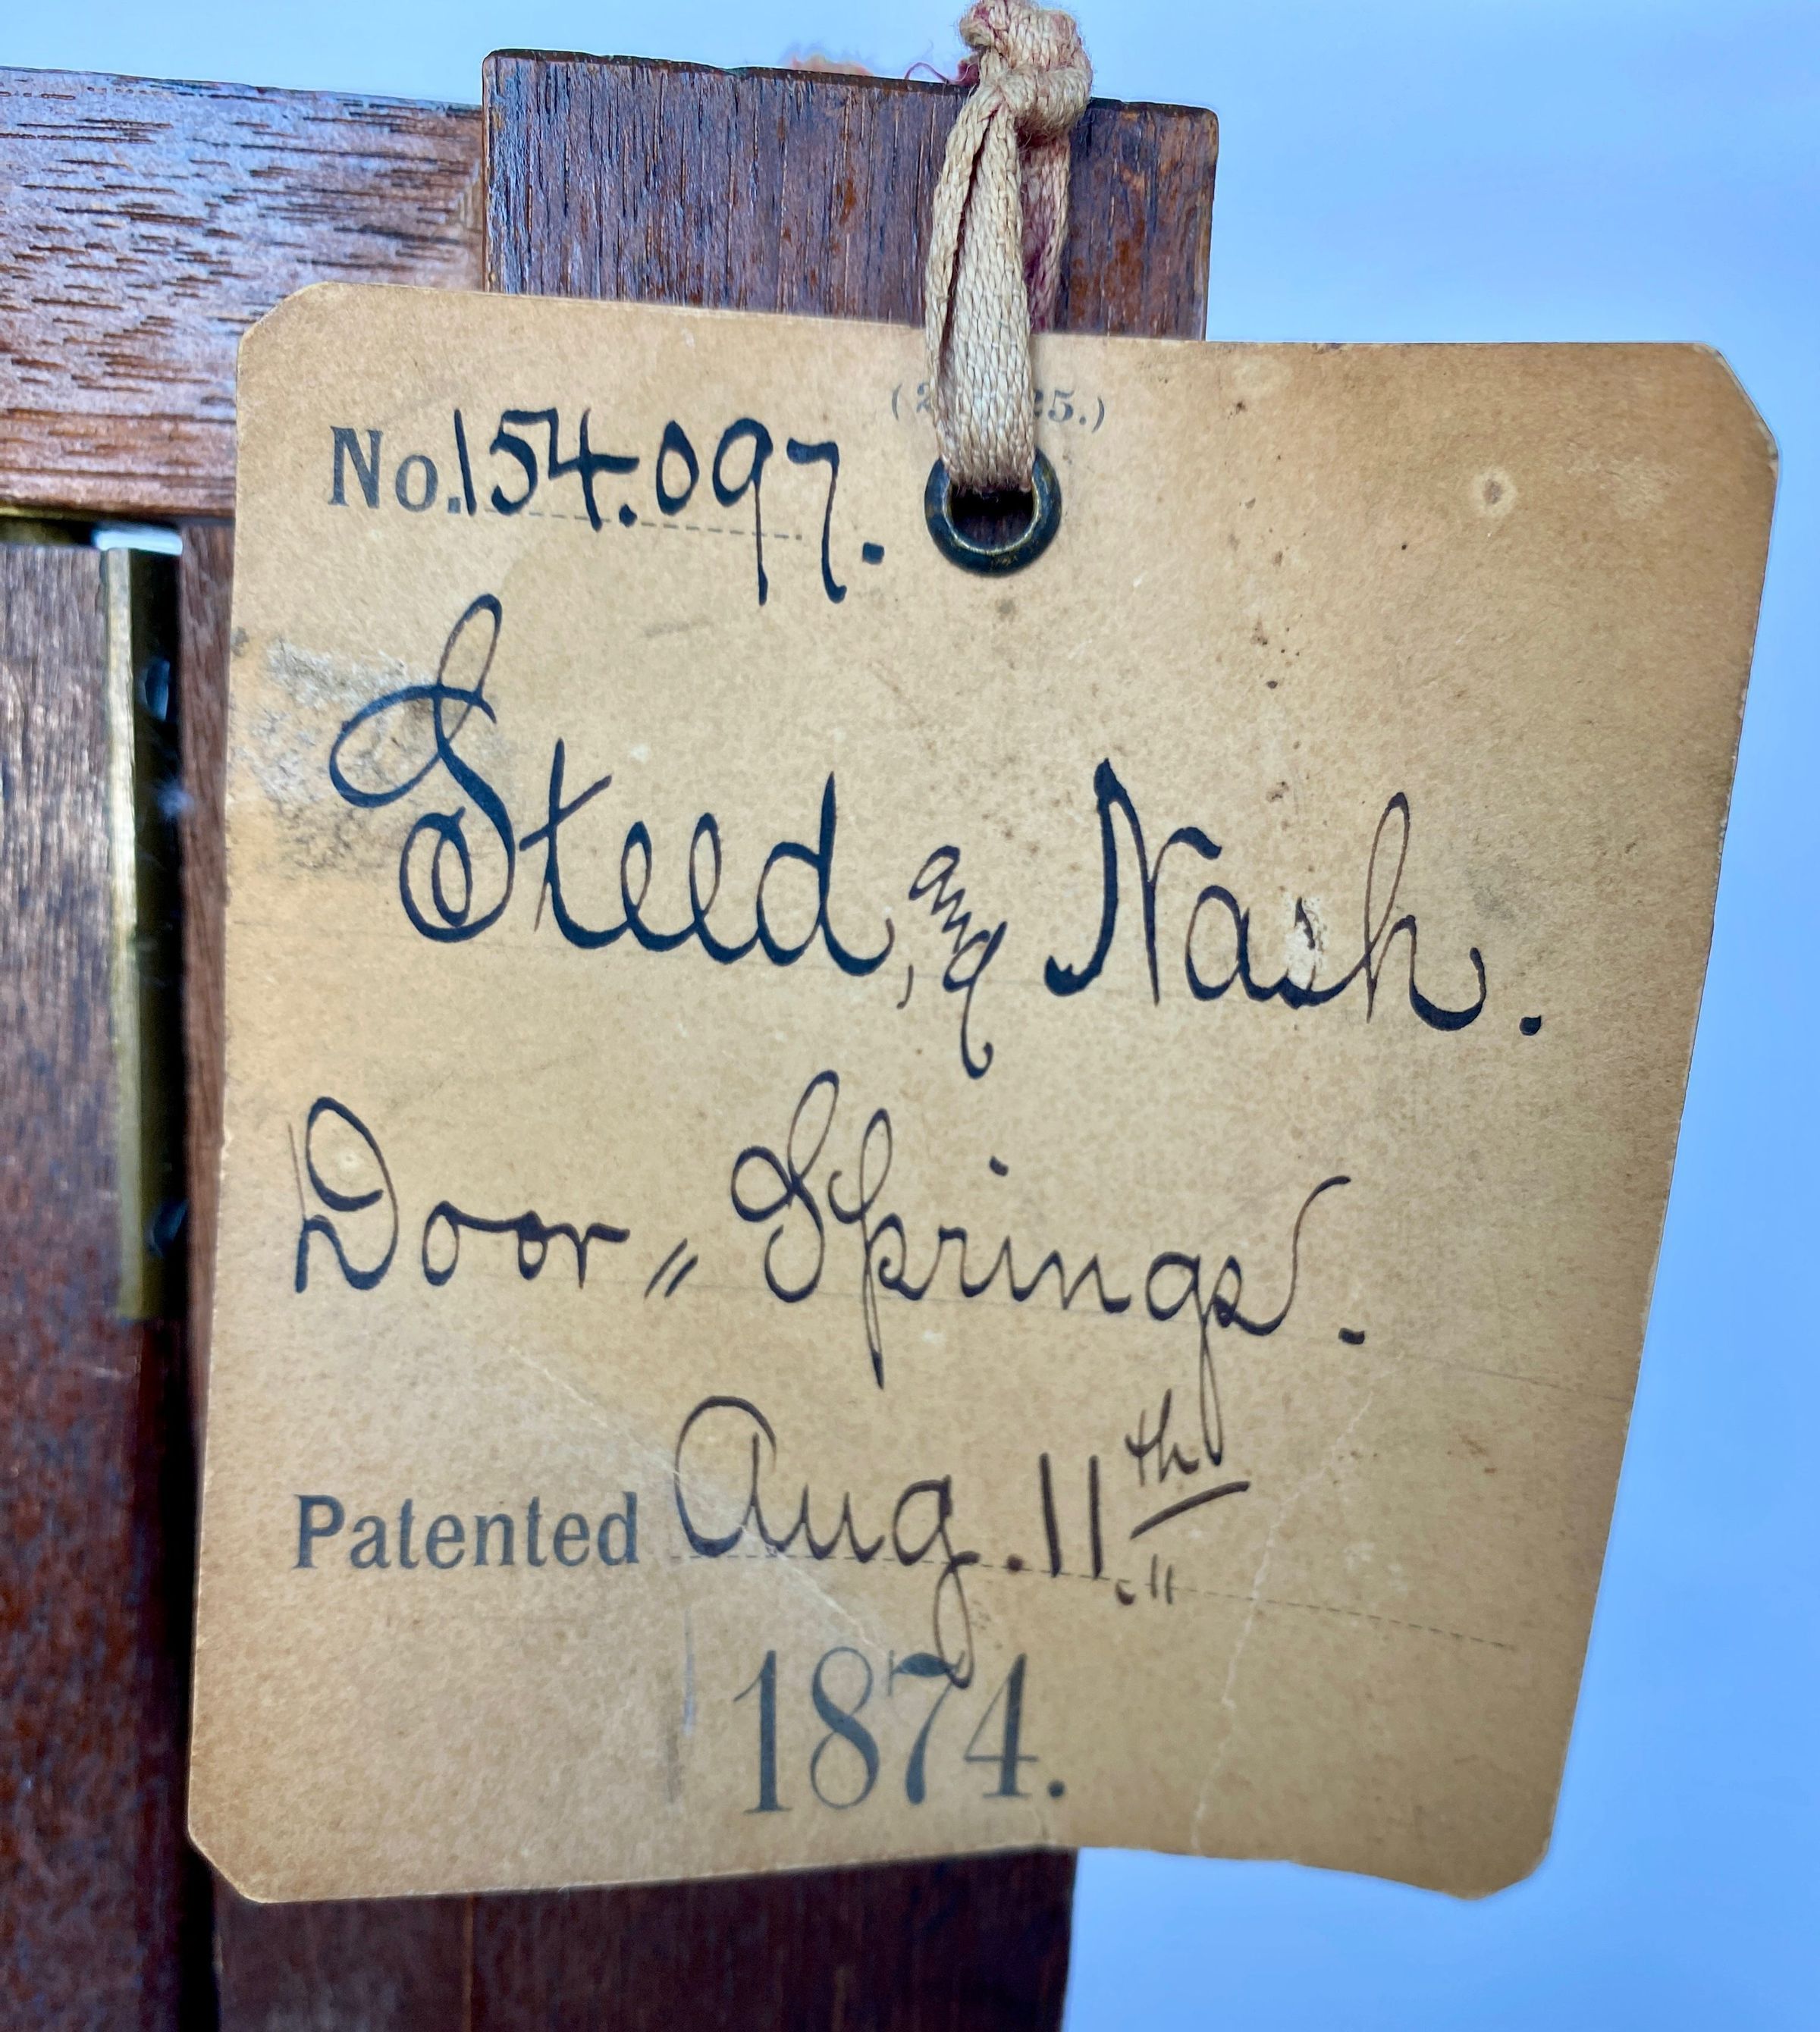 No. 154.097.
Steed, and Nash.
Door " Springs.
Patented Aug. 11th "
1874.